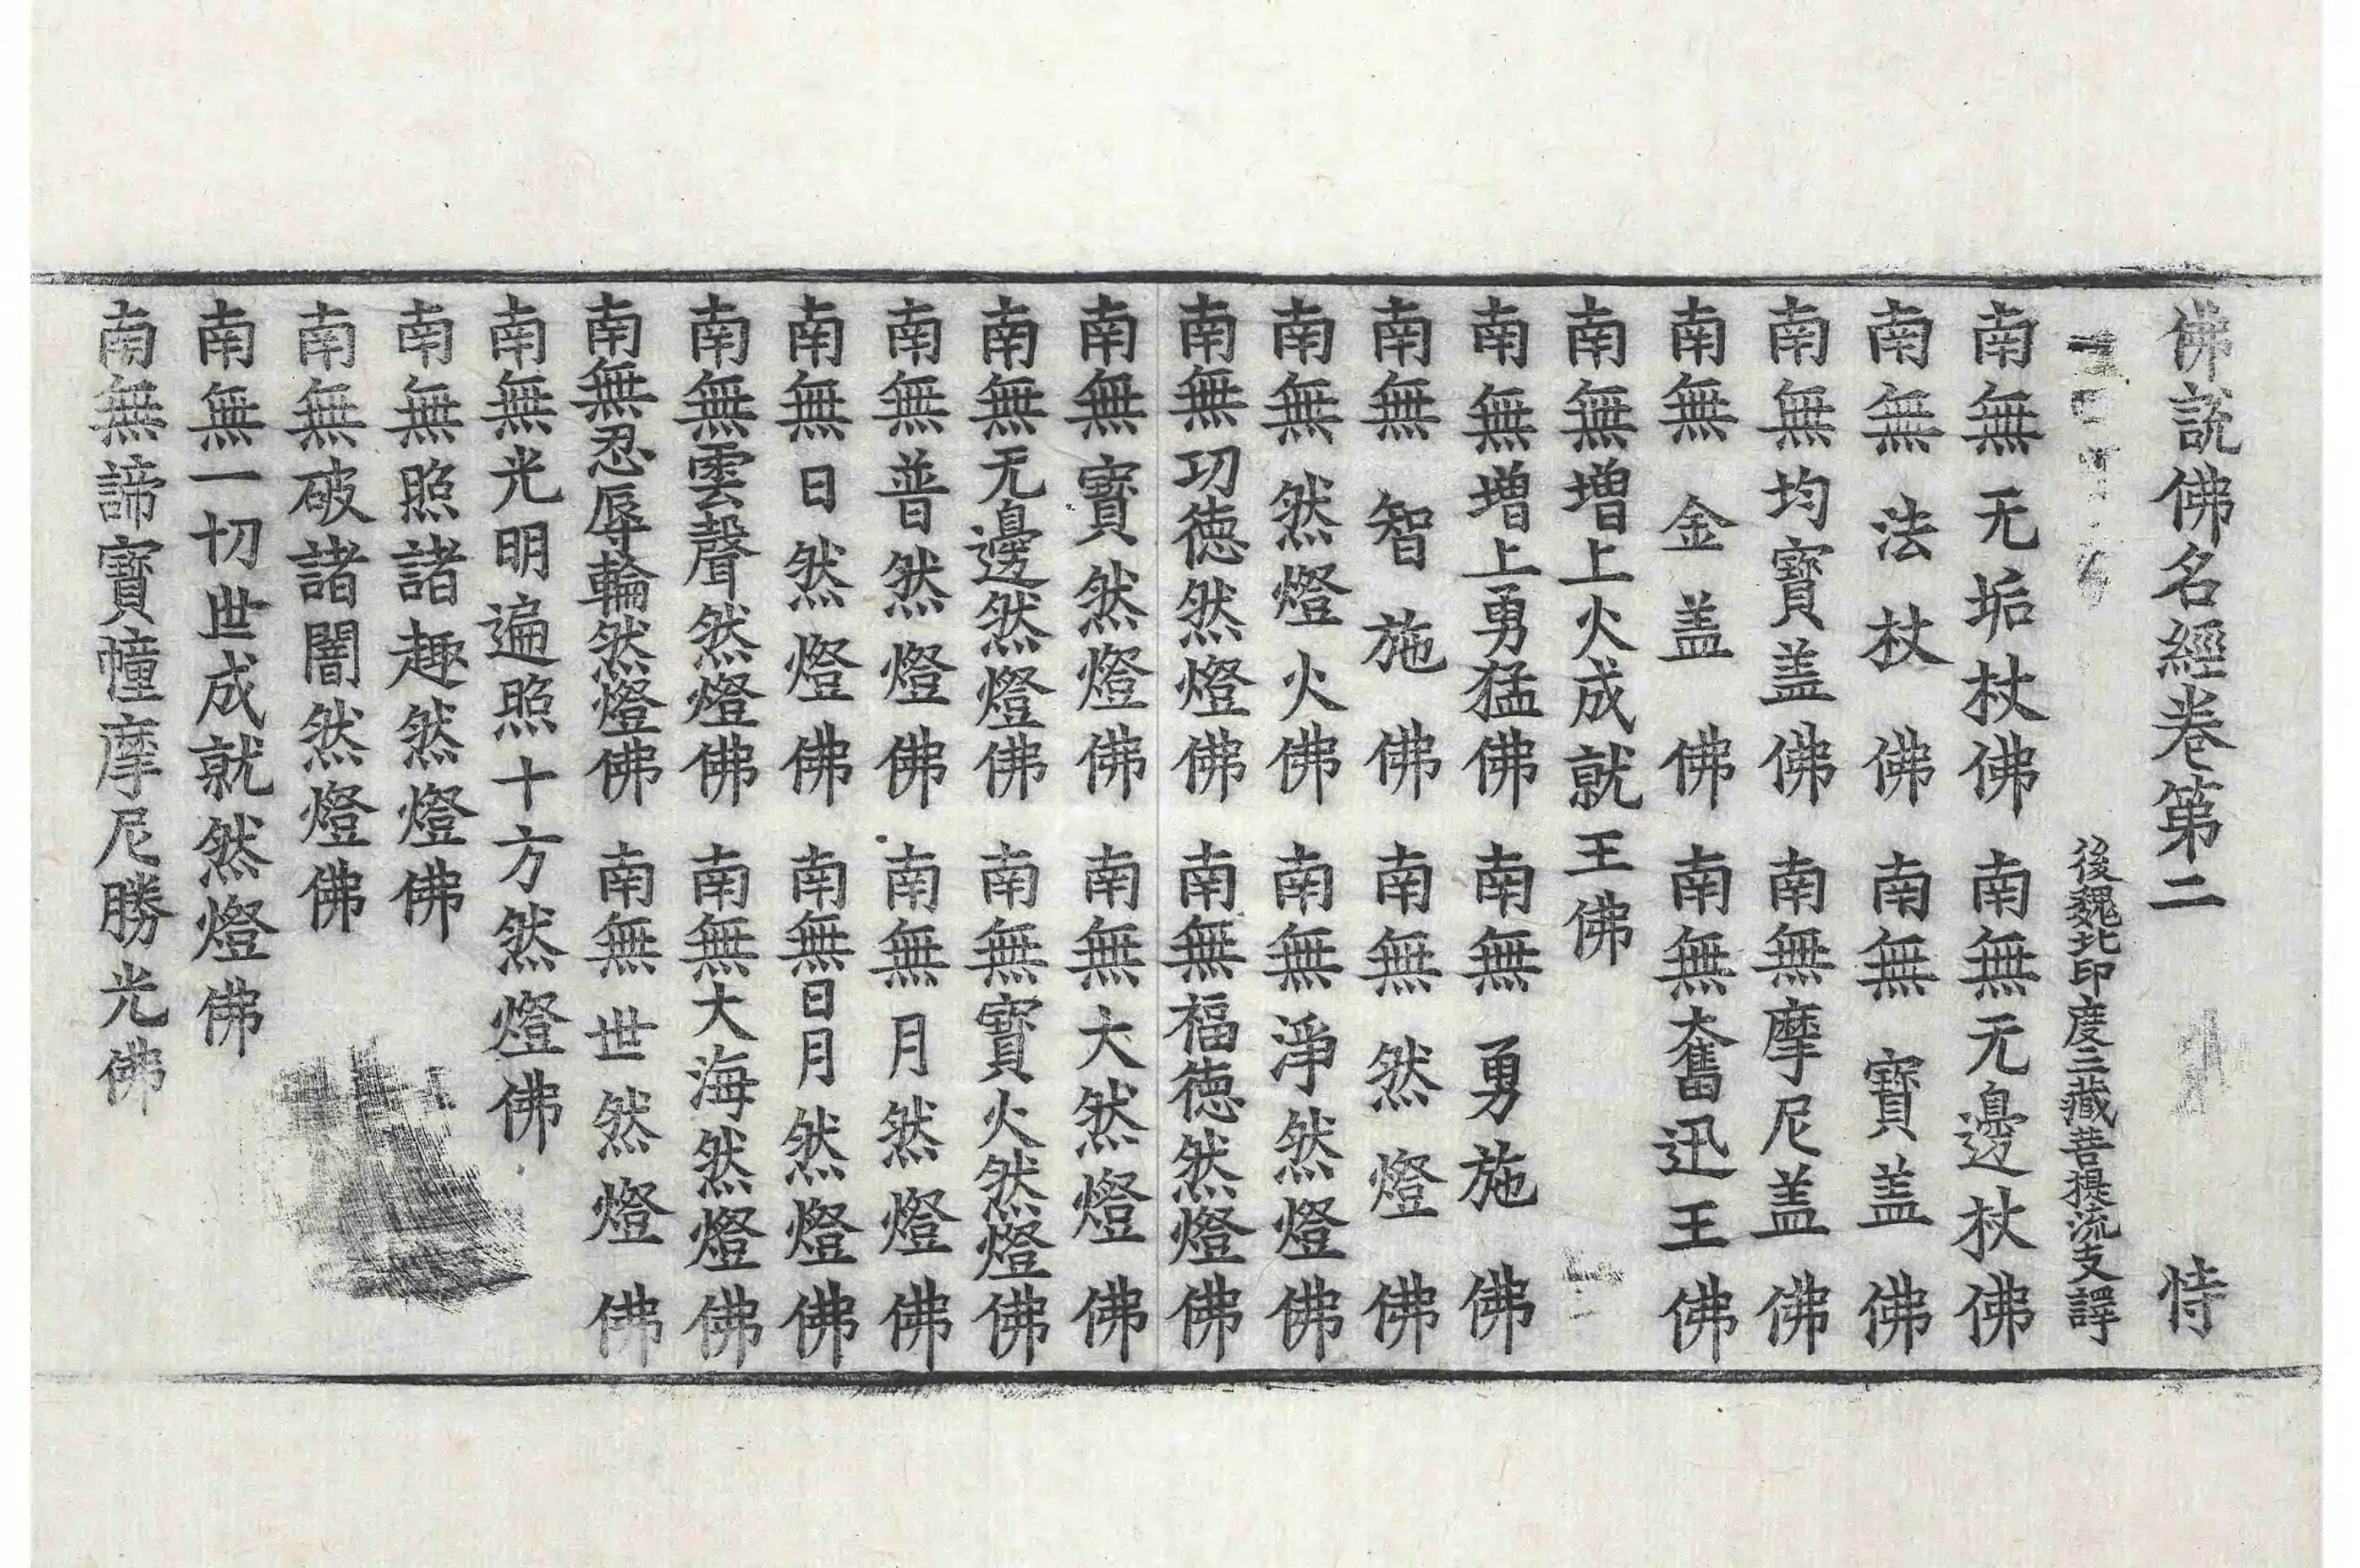 佛説佛名經卷第二 恃
後魏北印度三藏菩提流支譯
南無无垢杖佛 南無无邊杖佛
南無法杖佛 南無寶盖佛
南無均寶盖佛 南無摩尼盖佛
南無金盖佛 南無奮迅王佛
南無增上火成就王佛
南無增上勇猛佛 南無勇施佛
南無智施佛 南無然燈佛
南無然燈火佛 南無淨然燈佛
南無功德然燈佛 南無福德然燈佛
南無寶然燈佛 南無大然燈佛
南無无邊然燈佛 南無寶火然燈佛
南無普然燈佛 南無月然燈佛
南無日然燈佛 南無日月然燈佛
南無雲聲然燈佛 南無大海然燈佛
南無忍辱輪然燈佛 南無世然燈佛
南無光明遍照十方然燈佛
南無照諸趣然燈佛
南無破諸闇然燈佛
南無一切世成就然燈佛
南無諦寶幢摩尼勝光佛